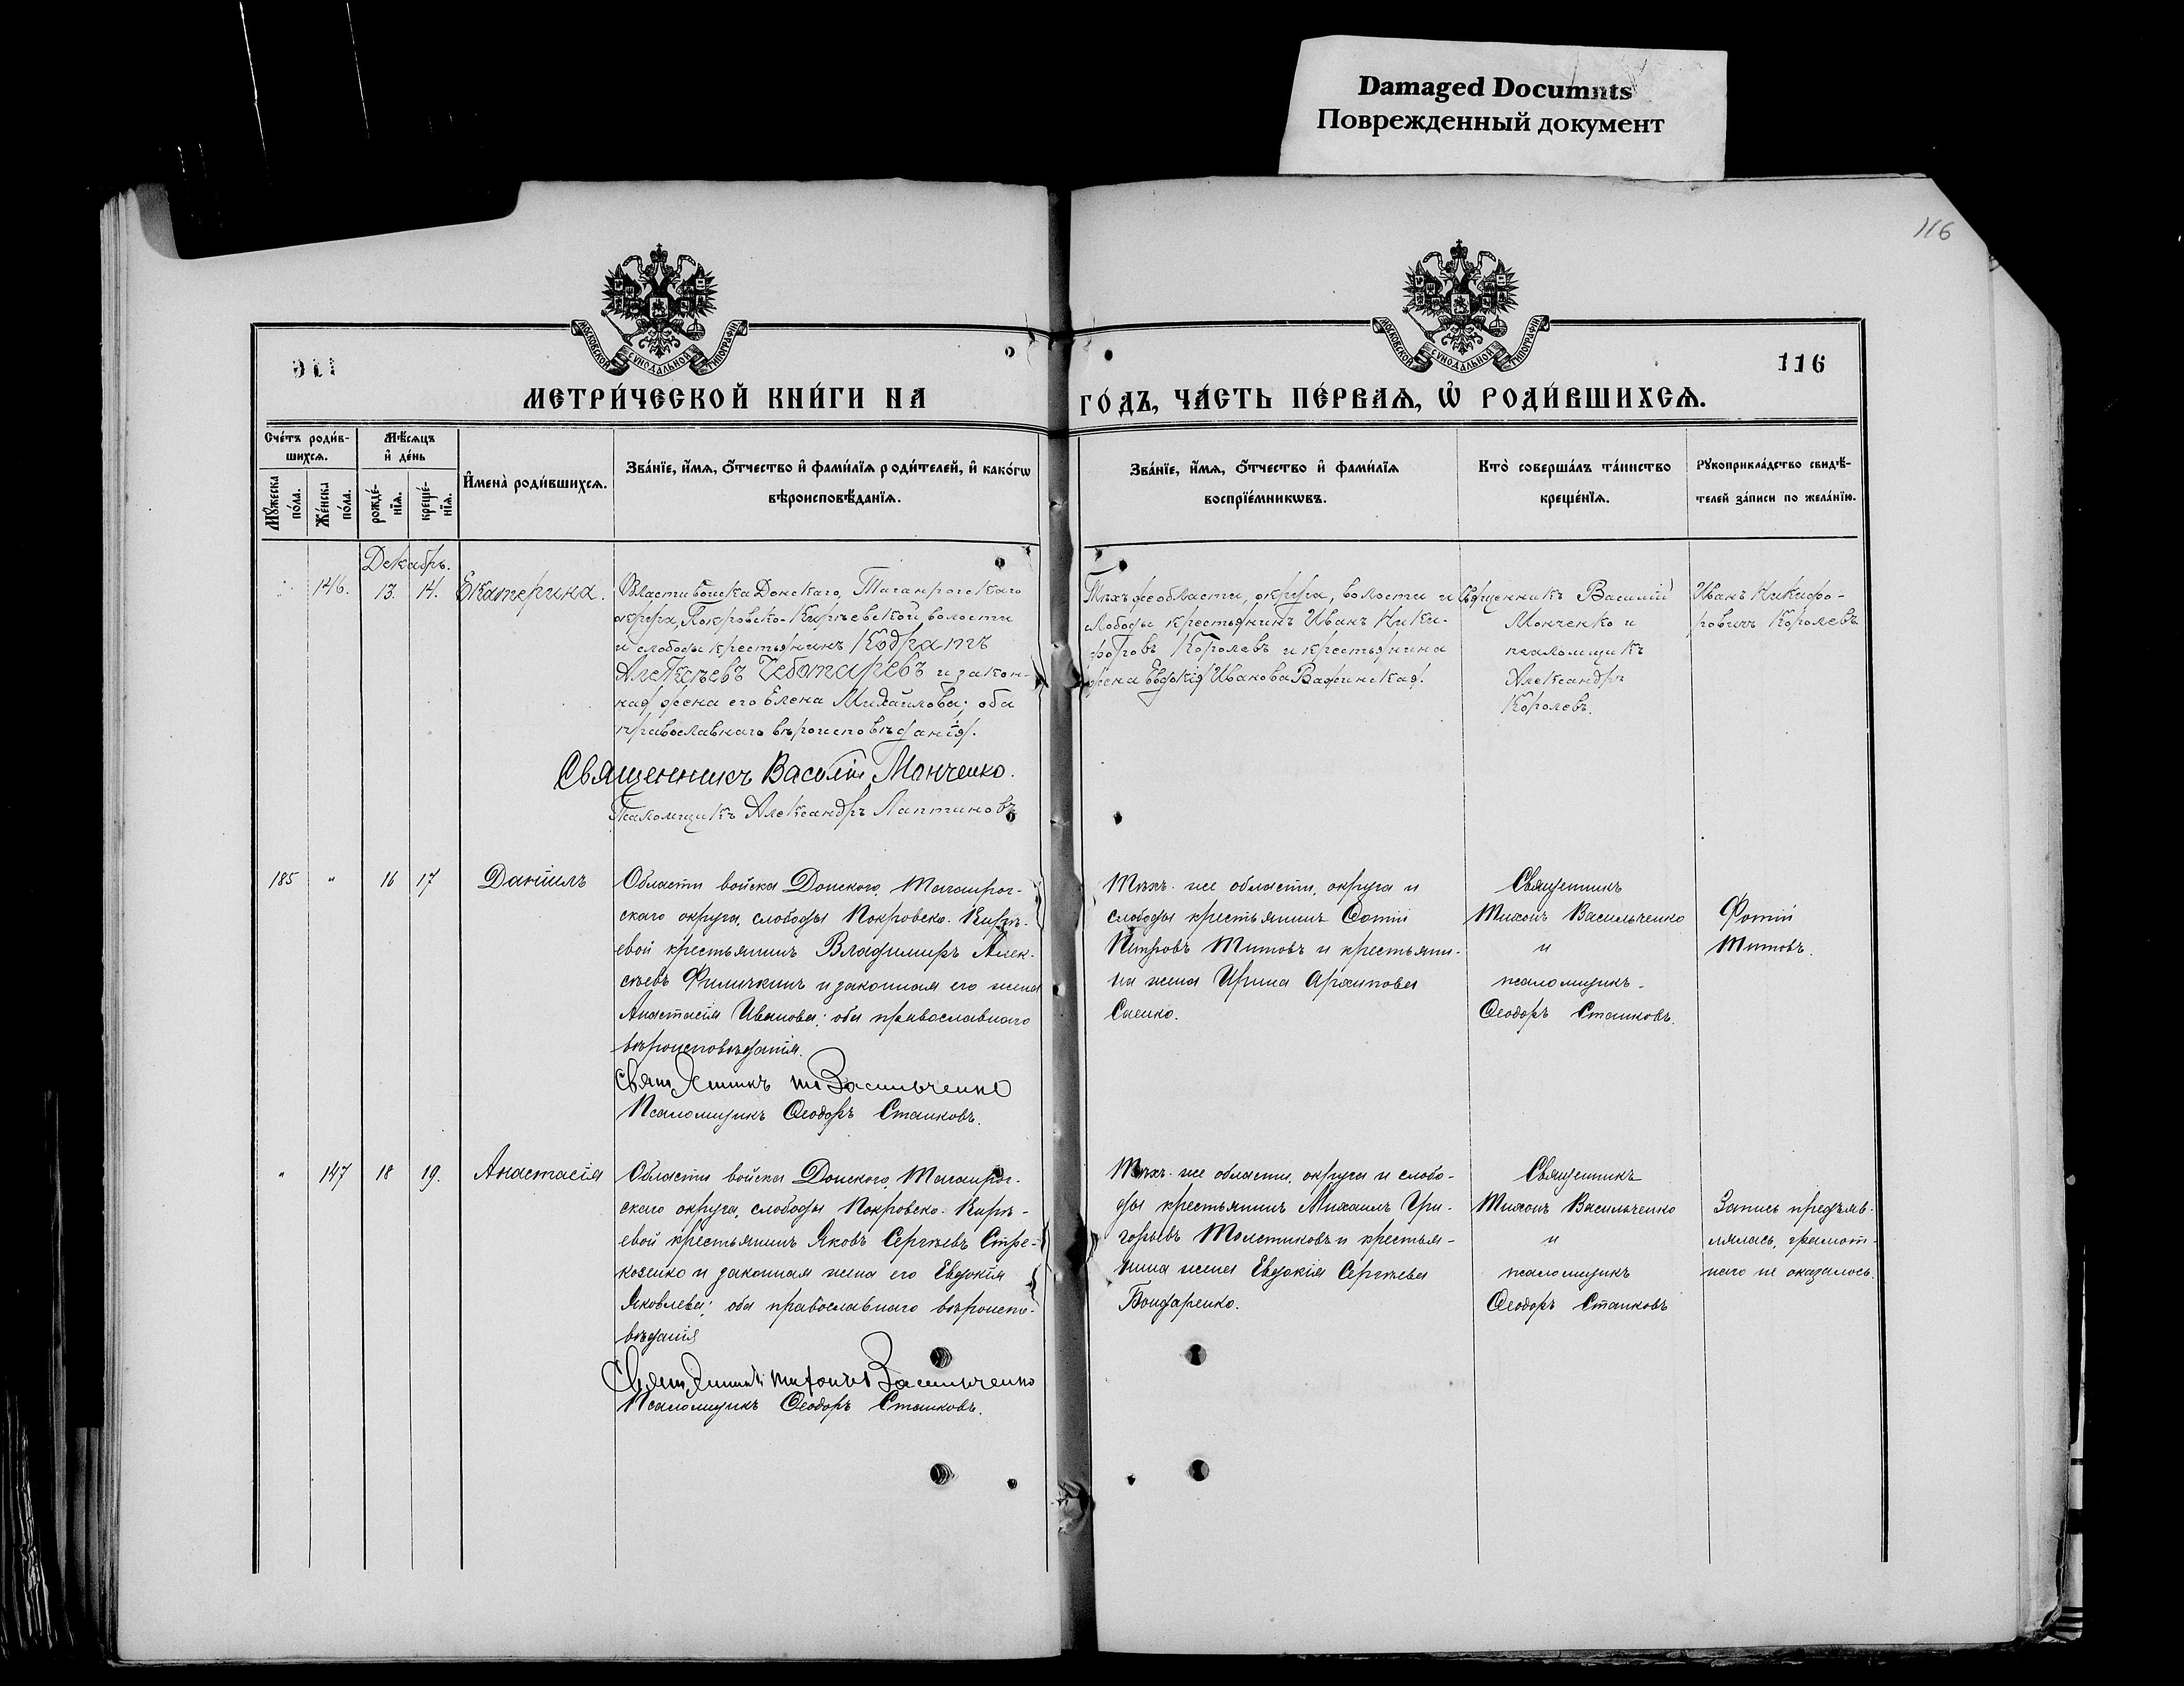 Damaged Documnts
Поврежденный документ
116
МОСКОВСКОЙ СУНОДАЛЬНОЙ ТИПОГРАФІИ
МОСКОВСКОЙ СУНОДАЛЬНОЙ ТИПОГРАФІИ
116
МЕТРИ́ЧЕСКОЙ КНИ́ГИ НА
ГО́ДЪ, ЧА́СТЬ ПЕ́РВАѦ, Ѡ҆ РОДИ́ВШИХСѦ.
Сче́тъ роди́в-
шихсѧ.
Мѣ́сѧцъ
и҆ де́нь
Мꙋ́жеска
по́ла.
Же́нска
по́ла.
рожде́-
нїѧ.
креще́-
нїѧ.
И҆мена̀ роди́вшихсѧ.
Зва́нїе, и҆́мѧ, ѻ҆́тчество и҆ фами́лїѧ роди́телей, и҆ како́гѡ
вѣроисповѣ́данїѧ.
Зва́нїе, и҆́мѧ, ѻ҆́тчество и҆ фами́лїѧ
воспрїе́мникѡвъ.
Кто̀ соверша́лъ та́инство
креще́нїѧ.
Рꙋкоприкла́дство свидѣ́-
телей за́писи по жела́нїю.
Декабрь.
146. 13. 14. Екатерина.
Области войска Донскаго, Таганрогскаго
округа, Покровско-Кирѣевской волости
и слободы крестьянинъ Кодратъ
Алексѣевъ Чеботаревъ и закон-
ная жена его Елена Михайлова; оба
православнаго вѣроисповѣданія.
Священникъ Василій Монченко.
Псаломщикъ Александръ Лаптиновъ
Тѣхъ же области, округа, волости и
слободы крестьянинъ Иванъ Ники-
форовъ Королевъ и крестьянина
жена Евдокія Иванова
Священникъ Василій
Монченко и
псаломщикъ
Александръ
Королевъ.
Иванъ Никифо-
ровичъ Королевъ
185 " 16 17 Даніилъ
Области войска Донского, Таганрог-
скаго округа, слободы Покровско-Кирѣ-
евой крестьянинъ Владимиръ Алек-
сѣевъ Филичкинъ и законная его жена
Анастасія Иванова; оба православнаго
вѣроисповѣданія.
Священникъ Т Васильченко
Псаломщикъ Ѳеодоръ Станковъ.
Тѣхъ-же области, округа и
слободы крестьянинъ Фотій
Петровъ Титовъ и крестьяни-
на жена Ирина Архипова
Саенко.
Священникъ
Тихонъ Васильченко
и
псаломщикъ
Ѳеодоръ Станковъ.
Фотій
Титовъ.
" 147 18 19. Анастасія
Области войска Донского, Таганрог-
скаго округа, слободы Покровско-Кирѣ-
евой крестьянинъ Яковъ Сергѣевъ Стре-
козенко и законная жена его Евдокія
Яковлева; оба православнаго вѣроиспо-
вѣданія
Священникъ Тихонъ Васильченко
Псаломщикъ Ѳеодоръ Станковъ.
Тѣхъ-же области, округа и слобо-
ды крестьянинъ Михаилъ Гри-
горьевъ Толстиковъ и крестья-
нина жена Евдокія Сергѣева
Бондаренко.
Священникъ
Тихонъ Васильченко
и
псаломщикъ
Ѳеодоръ Станковъ
Запись предъяв-
лялась, грамот-
наго не оказалось.